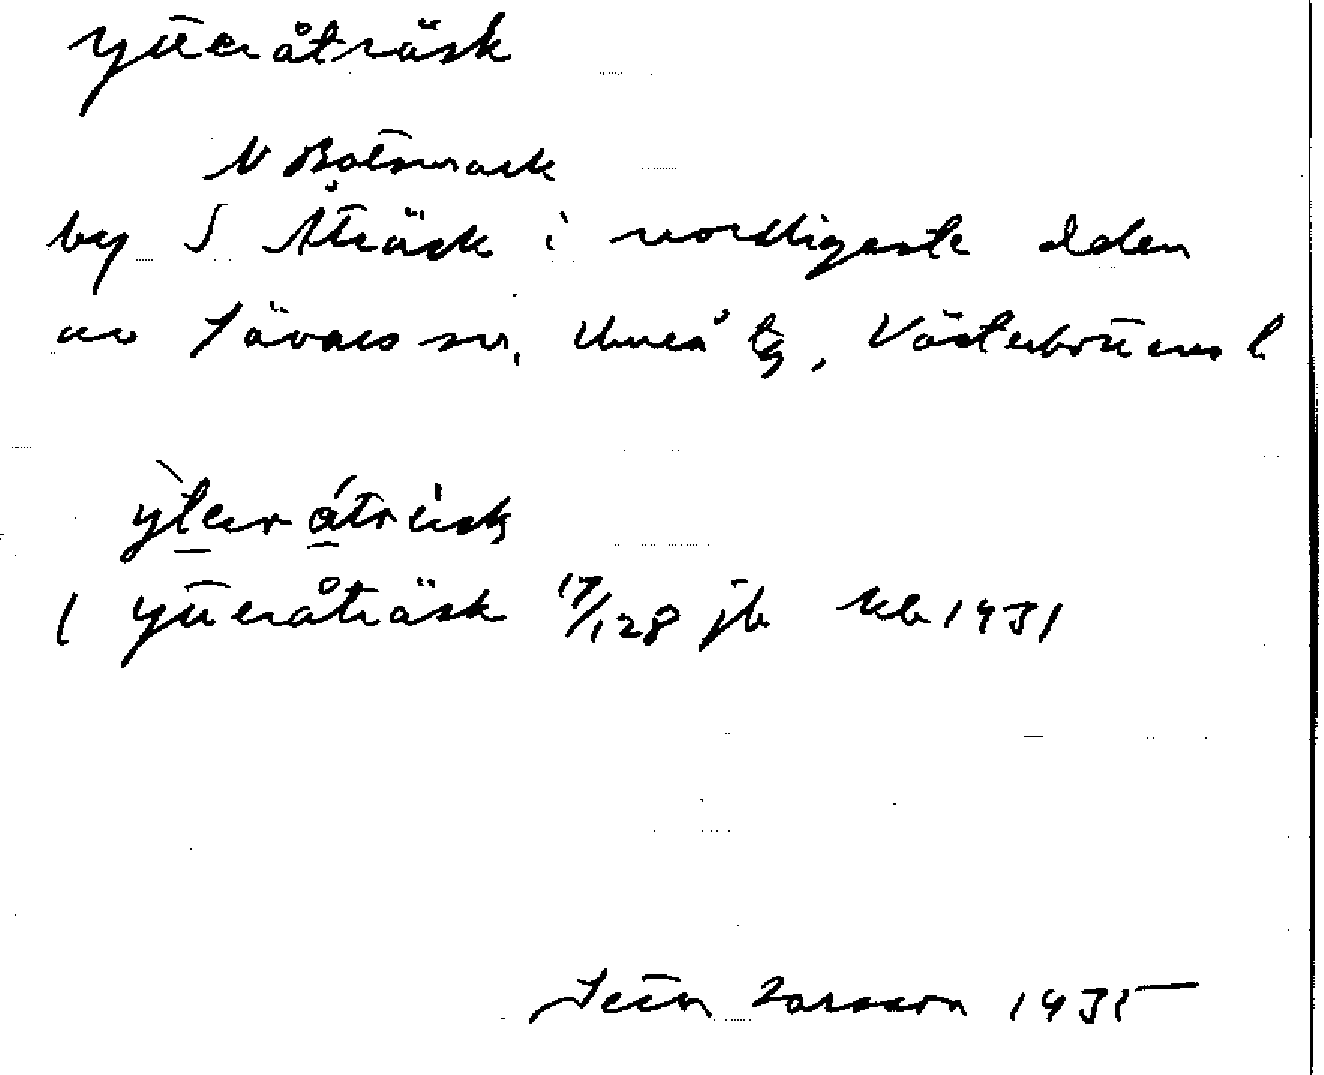 Ytteråträsk
N Botsmark
by S Åträsk i nordligaste delen
av Sävars sn, Umeå tg, Västerbottens l
yteråträsk
( Ytteråträsk 17/128 jb 1931
Sten Larsson 1935